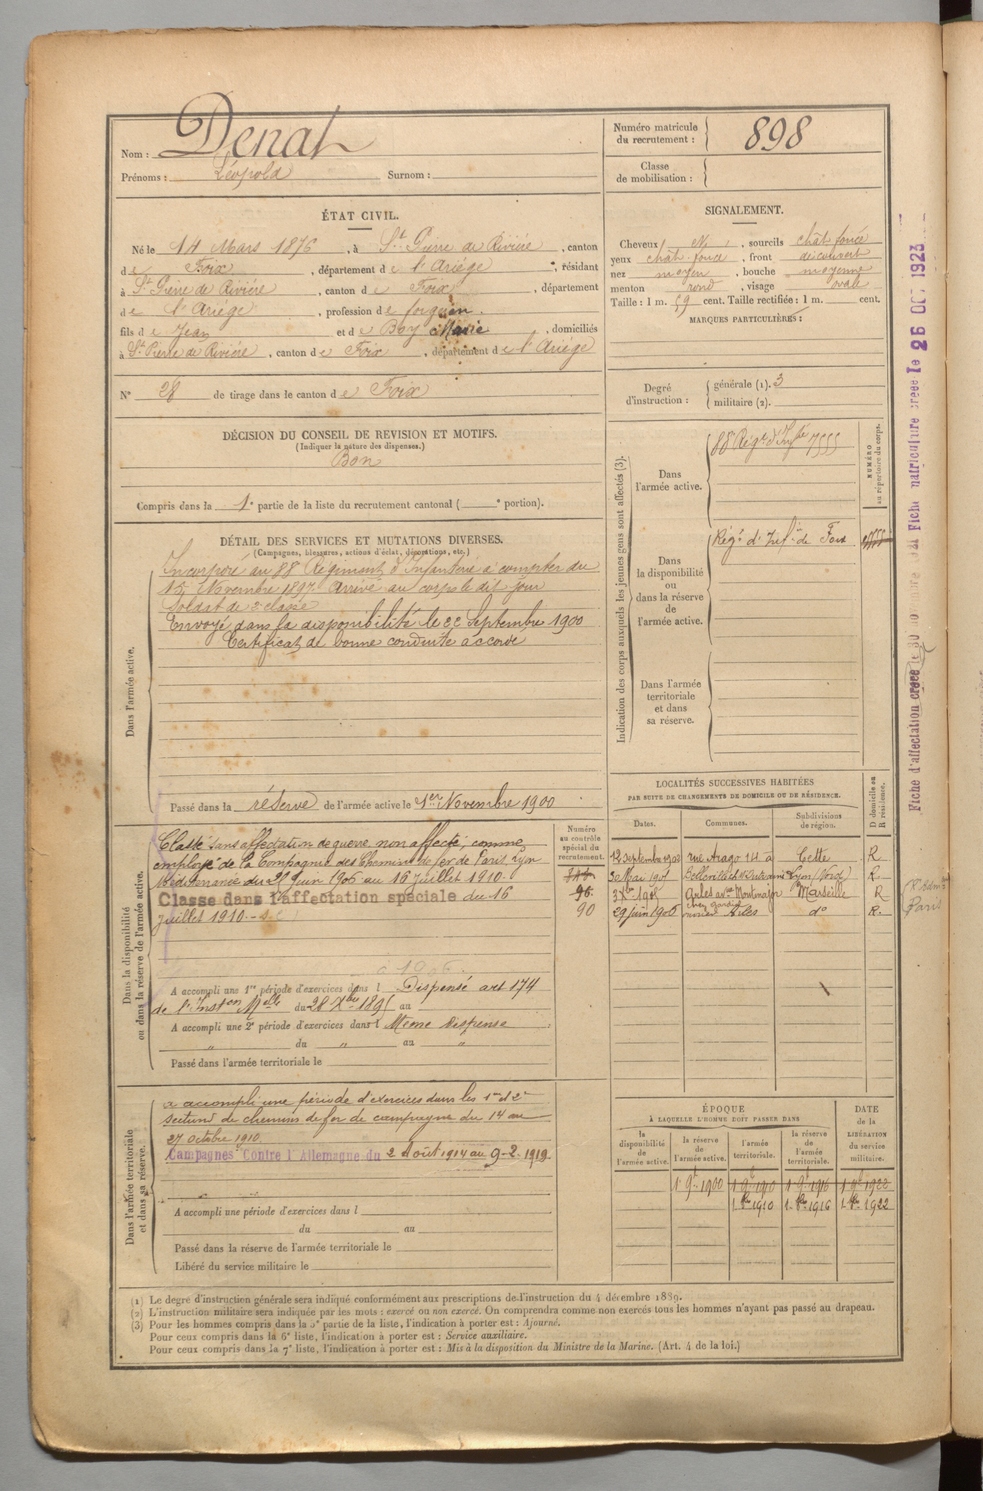 Nom : Denat
Prénoms : Léopold Surnom :
Numéro matricule du recrutement : 898
Classe de mobilisation :
ÉTAT CIVIL.
Né le 14 Mars 1876, à St Pierre de Rivière, canton
de Foix, département de l'Ariège, résidant
à St Pierre de Rivière, canton de Foix, département
de l'Ariège, profession de
fils de Jean et de Boy Marie, domiciliés
à St Pierre de Rivière, canton de Foix, département de l'Ariège
N° 28 de tirage dans le canton de Foix
SIGNALEMENT.
Cheveux , sourcils chât foncé
yeux chât foncé, front découvert
nez moyen, bouche moyenne
menton rond, visage ovale
Taille : 1 m. 59 cent. Taille rectifiée : 1 m. cent.
MARQUES PARTICULIÈRES :
Degré d'instruction : générale (1). 3
militaire (2).
DÉCISION DU CONSEIL DE REVISION ET MOTIFS.
(Indiquer la nature des dispenses.)
Bon
Compris dans la 1e partie de la liste du recrutement cantonal ( e portion).
DÉTAIL DES SERVICES ET MUTATIONS DIVERSES.
(Campagnes, blessures, actions d'éclat, décorations, etc.)
Dans l'armée active.
Incorporé au 88e Régiment d'Infanterie à compter du
15 Novembre 1897. Arrivé au corps le dit jour
Soldat de 2e classe
Envoyé dans la disponibilité le 22 Septembre 1900
Certificat de bonne conduite accordé
Passé dans la réserve de l'armée active le 1er Novembre 1900
Indication des corps auxquels les jeunes gens sont affectés (3).
NUMÉRO au répertoire du corps.
Dans l'armée active.
88e Régt d'Infie
Dans la disponibilité ou dans la réserve de l'armée active.
Régt d'Infie de Foix
Dans l'armée territoriale et dans sa réserve.
Dans la disponibilité ou dans la réserve de l'armée active.
Classé sans affectation de guerre non affecté, comme
employé de la Compagnie des Chemins de fer de Paris, Lyon
Méditerranée du 29 juin 1906 au 16 juillet 1910.
Classé dans l'affectation spéciale du 16
juillet 1910.
Numéro au contrôle spécial du recrutement.
90
A accompli une 1re période d'exercices dans l Dispensé art 174
de l'Inston Melle du 28 Xbre 1895 au
A accompli une 2e période d'exercices dans l Même dispense
" du " au "
Passé dans l'armée territoriale le
LOCALITÉS SUCCESSIVES HABITÉES
PAR SUITE DE CHANGEMENTS DE DOMICILE OU DE RÉSIDENCE.
Dates. Communes. Subdivisions de région. D domicile ou R résidence.
rue Arago 14 à Cette R
3 Mai Lyon R.
Arles Montmajour Marseille R
29 juin 1906 Arles do R.
Dans l'armée territoriale et dans sa réserve.
a accompli une période d'exercices dans les 1re et 2e
sections de chemins de fer de campagne du 14 au
27 octobre 1910.
Campagnes Contre l'Allemagne du 2 Août 1914 au 9-2-1919.
A accompli une période d'exercices dans l
du au
Passé dans la réserve de l'armée territoriale le
Libéré du service militaire le
ÉPOQUE
À LAQUELLE L'HOMME DOIT PASSER DANS
la disponibilité de l'armée active. la réserve de l'armée active. l'armée territoriale. la réserve de l'armée territoriale. DATE de la LIBÉRATION du service militaire.
1 9bre 1900 1 9bre 1910 1 9bre 1916 1 9bre 1922
1 8bre 1910 1 8bre 1916 1 8bre 1922
(1) Le degré d'instruction générale sera indiqué conformément aux prescriptions de l'instruction du 4 décembre 1889.
(2) L'instruction militaire sera indiquée par les mots : exercé ou non exercé. On comprendra comme non exercés tous les hommes n'ayant pas passé au drapeau.
(3) Pour les hommes compris dans la 5e partie de la liste, l'indication à porter est : Ajourné.
Pour ceux compris dans la 6e liste, l'indication à porter est : Service auxiliaire.
Pour ceux compris dans la 7e liste, l'indication à porter est : Mis à la disposition du Ministre de la Marine. (Art. 4 de la loi.)
Fiche matriculaire créée le 26 OCT 1923
Fiche d'affectation créée le 30